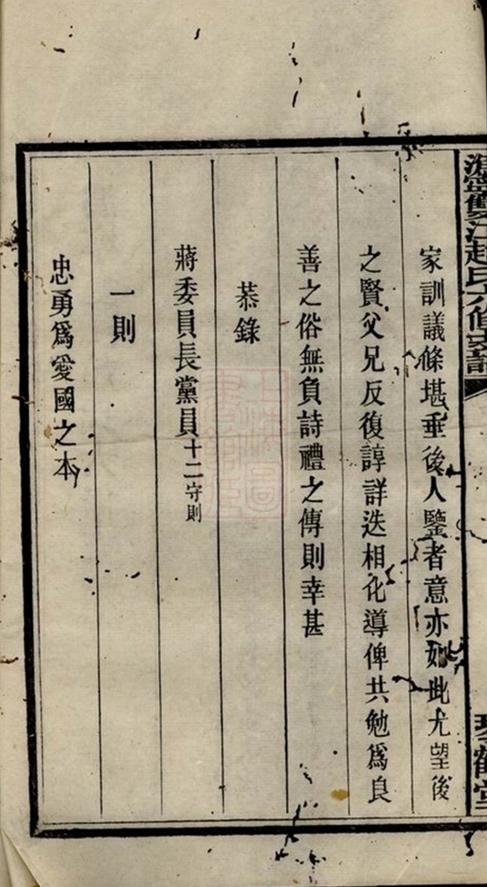 江趙氏六修支譜
琴鶴堂
家訓議條堪垂後人鑒者意亦如此尤望後
之賢父兄反復諄詳迭相化導俾共勉為良
善之俗無負詩禮之傳則幸甚
恭錄
蔣委員長黨員十二守則
一則
忠勇為愛國之本